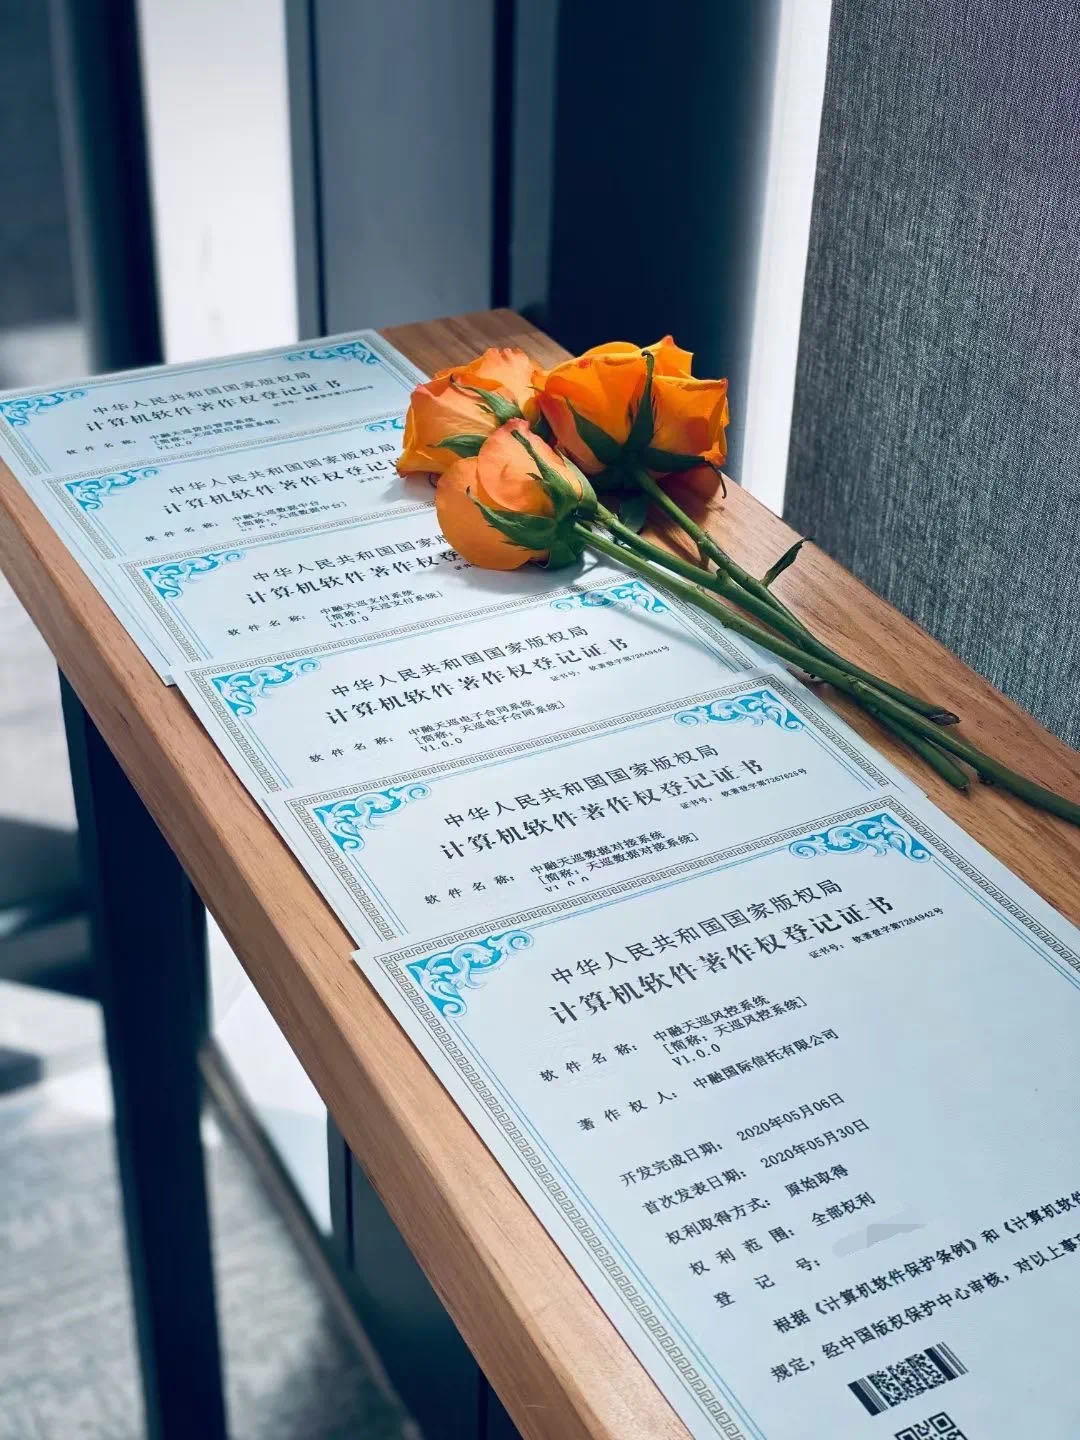 中华人民共和国国家版权局
计算机软件著作权登记证书
证书号：
软件名称：
中融天巡贷后管理系统
[简称：天巡贷后管理系统]
V1.0.0
中华人民共和国国家版权局
计算机软件著作权登记
软件名称：
中融天巡数据中台
[简称：天巡数据中台]
中华人民共和国国家
计算机软件著作权
软件名称：
中融天巡支付系统
[简称：天巡支付系统]
V1.0.0
中华人民共和国国家版权局
计算机软件著作权登记证书
证书号：软著登字第7264944号
软件名称：
中融天巡电子合同系统
[简称：天巡电子合同系统]
V1.0.0
中华人民共和国国家版权局
计算机软件著作权登记证书
证书号：软著登字第7267625号
软件名称：
中融天巡数据对接系统
[简称：天巡数据对接系统]
V1.0.0
中华人民共和国国家版权局
计算机软件著作权登记证书
证书号：软著登字第7264942号
软件名称：
中融天巡风控系统
[简称：天巡风控系统]
V1.0.0
著作权人：中融国际信托有限公司
开发完成日期：2020年05月06日
首次发表日期：2020年05月30日
权利取得方式：原始取得
权利范围：全部权利
登记号：
根据《计算机软件保护条例》和《计算机软件
规定，经中国版权保护中心审核，对以上事